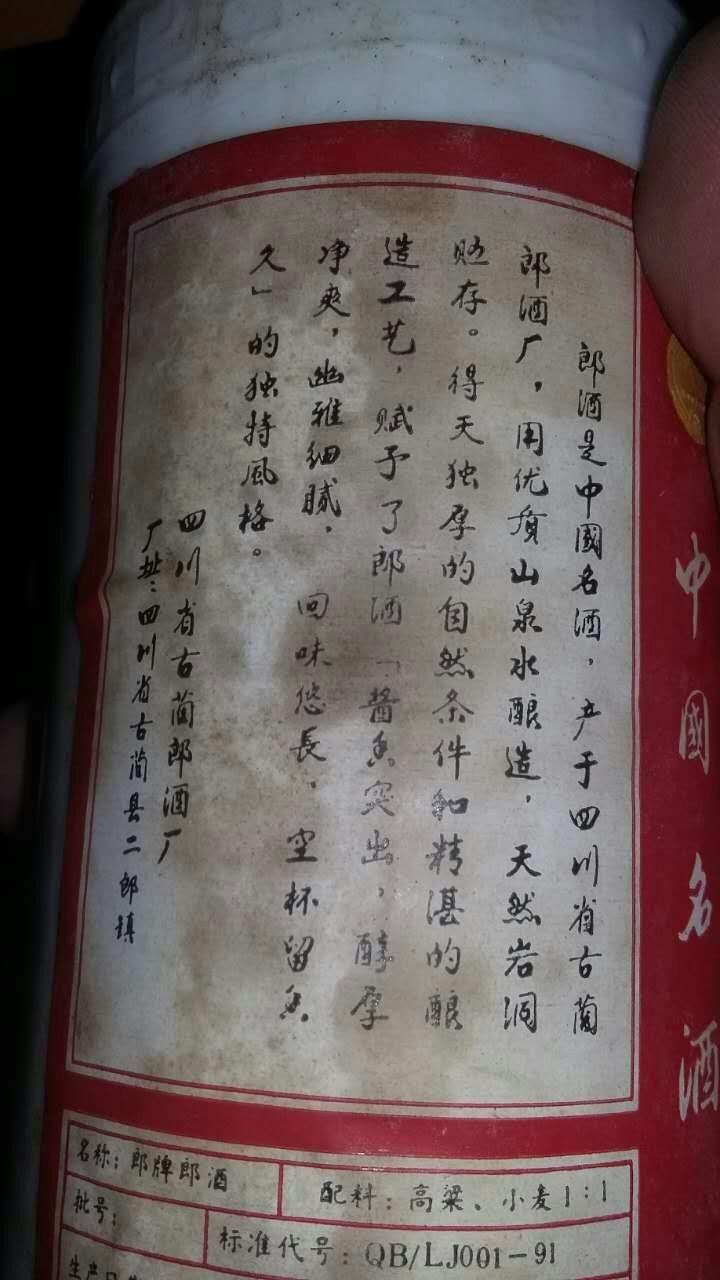 郎酒是中國名酒，产于四川省古蔺
郎酒厂，用优质山泉水酿造，天然岩洞
贮存。得天独厚的自然条件和精湛的酿
造工艺，赋予了郎酒「酱香突出，醇厚
净爽，幽雅细腻，回味悠長，空杯留香
久」的独特風格。
四川省古蔺郎酒厂
厂址：四川省古蔺县二郎镇
中國名酒
名称：郎牌郎酒
配料：高粱、小麦1:1
批号：
标准代号：QB/LJ001-91
生产日